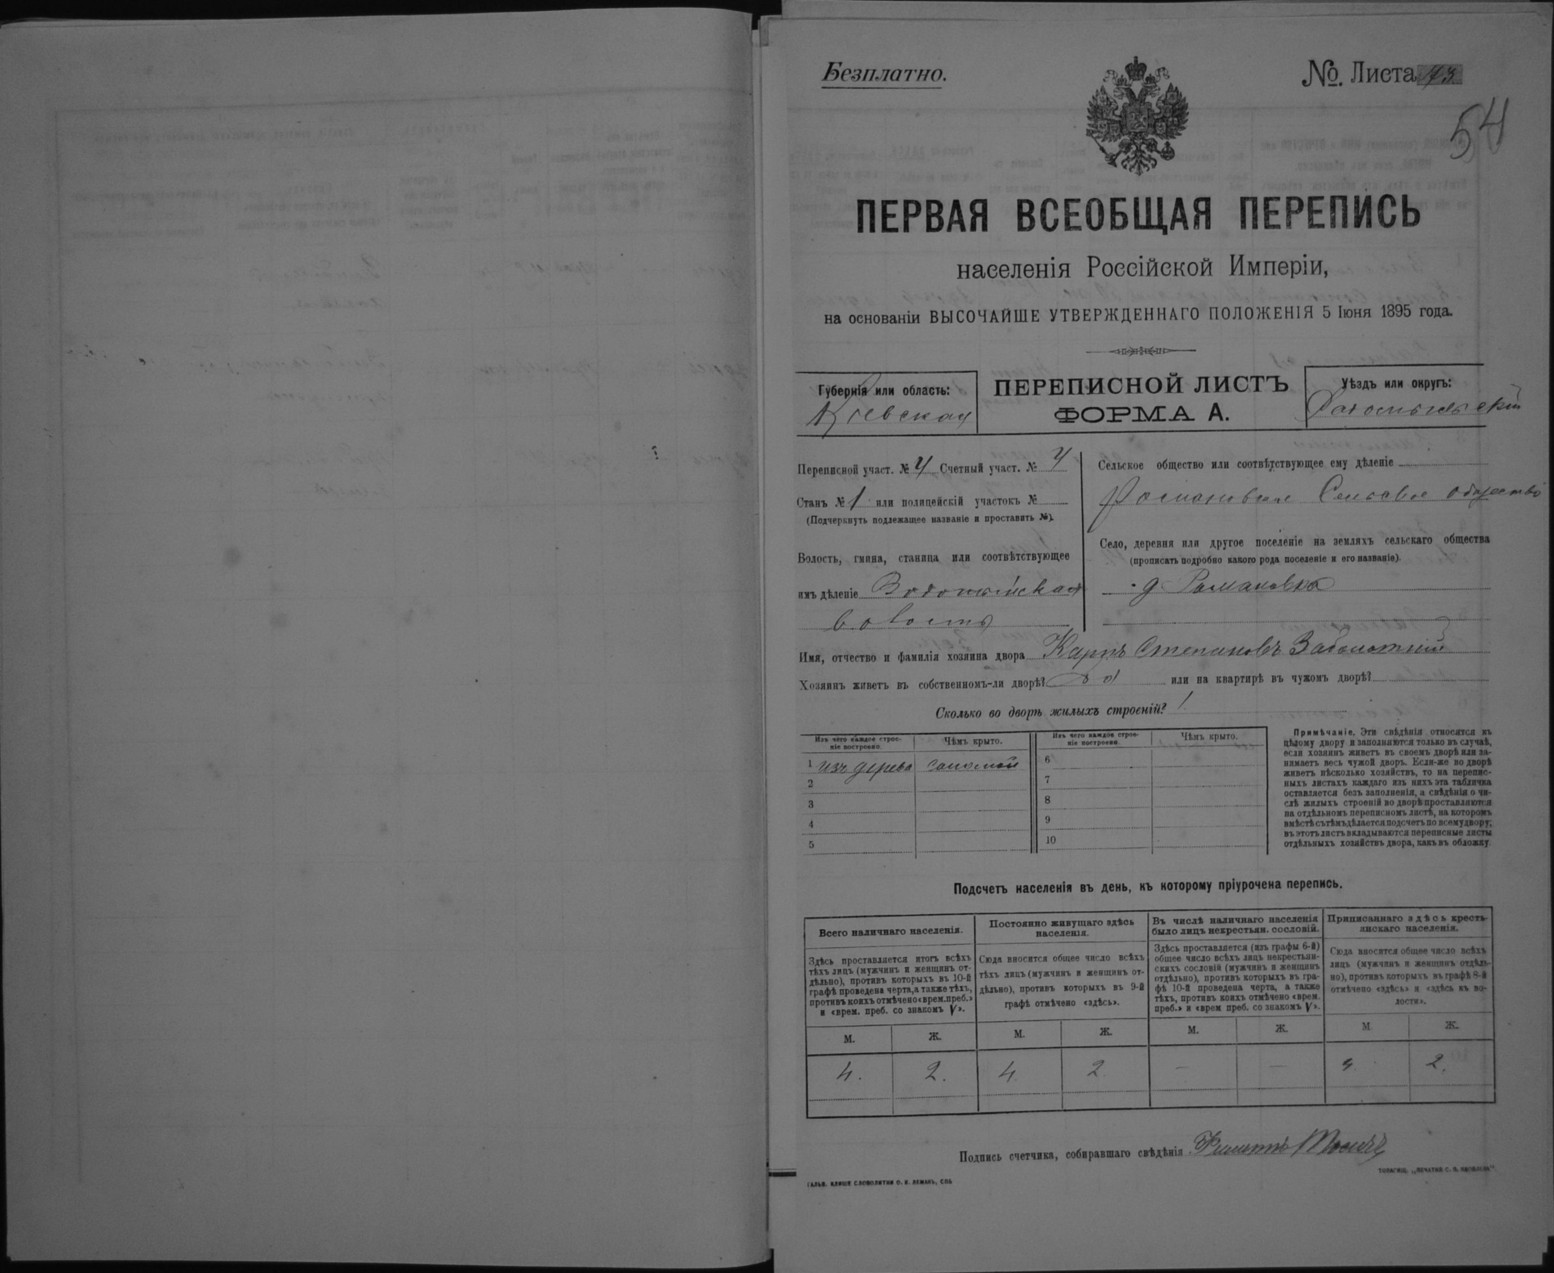 Безплатно.
№. Листа 43
54
ПЕРВАЯ ВСЕОБЩАЯ ПЕРЕПИСЬ
населенія Россійской Имперіи,
на основаніи ВЫСОЧАЙШЕ УТВЕРЖДЕННАГО ПОЛОЖЕНІЯ 5 Іюня 1895 года.
Губернія или область:
Кіевская
ПЕРЕПИСНОЙ ЛИСТЪ
ФОРМА А.
Уѣздъ или округъ:
Радомысльскій
Переписной участ. № 4 Счетный участ. № 4
Станъ № 1 или полицейскій участокъ №
(Подчеркнуть подлежащее названіе и проставить №).
Волость, гмина, станица или соотвѣтствующее
имъ дѣленіе Водотыйская
волость
Сельское общество или соотвѣтствующее ему дѣленіе
Романовское Сельское общество
Село, деревня или другое поселеніе на земляхъ сельскаго общества
(прописать подробно какого рода поселеніе и его названіе)
д Романовка
Имя, отчество и фамилія хозяина двора Карпъ Степановъ Заболотній
Хозяинъ живетъ въ собственномъ-ли дворѣ? да или на квартирѣ въ чужомъ дворѣ?
Сколько во дворѣ жилыхъ строеній? 1
Изъ чего каждое строе-
ніе построено.
Чѣмъ крыто.
1 изъ дерева соломой
2
3
4
5
Изъ чего каждое строе-
ніе построено.
Чѣмъ крыто.
6
7
8
9
10
Примѣчаніе. Эти свѣдѣнія относятся къ
цѣлому двору и заполняются только въ случаѣ,
если хозяинъ живетъ въ своемъ дворѣ или за-
нимаетъ весь чужой дворъ. Если-же во дворѣ
живетъ нѣсколько хозяйствъ, то на перепис-
ныхъ листахъ каждаго изъ нихъ эта табличка
оставляется безъ заполненія, а свѣдѣнія о чи-
слѣ жилыхъ строеній во дворѣ проставляются
на отдѣльномъ переписномъ листѣ, на которомъ
вмѣстѣ съ тѣмъ дѣлается подсчетъ по всему двору;
въ этотъ листъ вкладываются переписные листы
отдѣльныхъ хозяйствъ двора, какъ въ обложку.
Подсчетъ населенія въ день, къ которому пріурочена перепись.
Всего наличнаго населенія.
Здѣсь проставляется итогъ всѣхъ
тѣхъ лицъ (мужчинъ и женщинъ от-
дѣльно), противъ которыхъ въ 10-й
графѣ проведена черта, а также тѣхъ,
противъ коихъ отмѣчено «врем. преб.»
и «врем. преб. со знакомъ V».
Постоянно живущаго здѣсь
населенія.
Сюда вносится общее число всѣхъ
тѣхъ лицъ (мужчинъ и женщинъ от-
дѣльно), противъ которыхъ въ 9-й
графѣ отмѣчено «здѣсь».
Въ числѣ наличнаго населенія
было лицъ некрестьян. сословій.
Здѣсь проставляется (изъ графы 6-й)
общее число всѣхъ лицъ некрестьян-
скихъ сословій (мужчинъ и женщинъ
отдѣльно), противъ которыхъ въ гра-
фѣ 10-й проведена черта, а также
тѣхъ, противъ коихъ отмѣчено «врем.
преб.» и «врем преб. со знакомъ V».
Приписаннаго здѣсь кресть-
янскаго населенія.
Сюда вносится общее число всѣхъ
лицъ (мужчинъ и женщинъ отдѣль-
но), противъ которыхъ въ графѣ 8-й
отмѣчено «здѣсь» и «здѣсь къ во-
лости».
М. Ж. М. Ж. М. Ж. М. Ж.
4. 2. 4 2 — — 4 2.
Подпись счетчика, собиравшаго свѣдѣнія